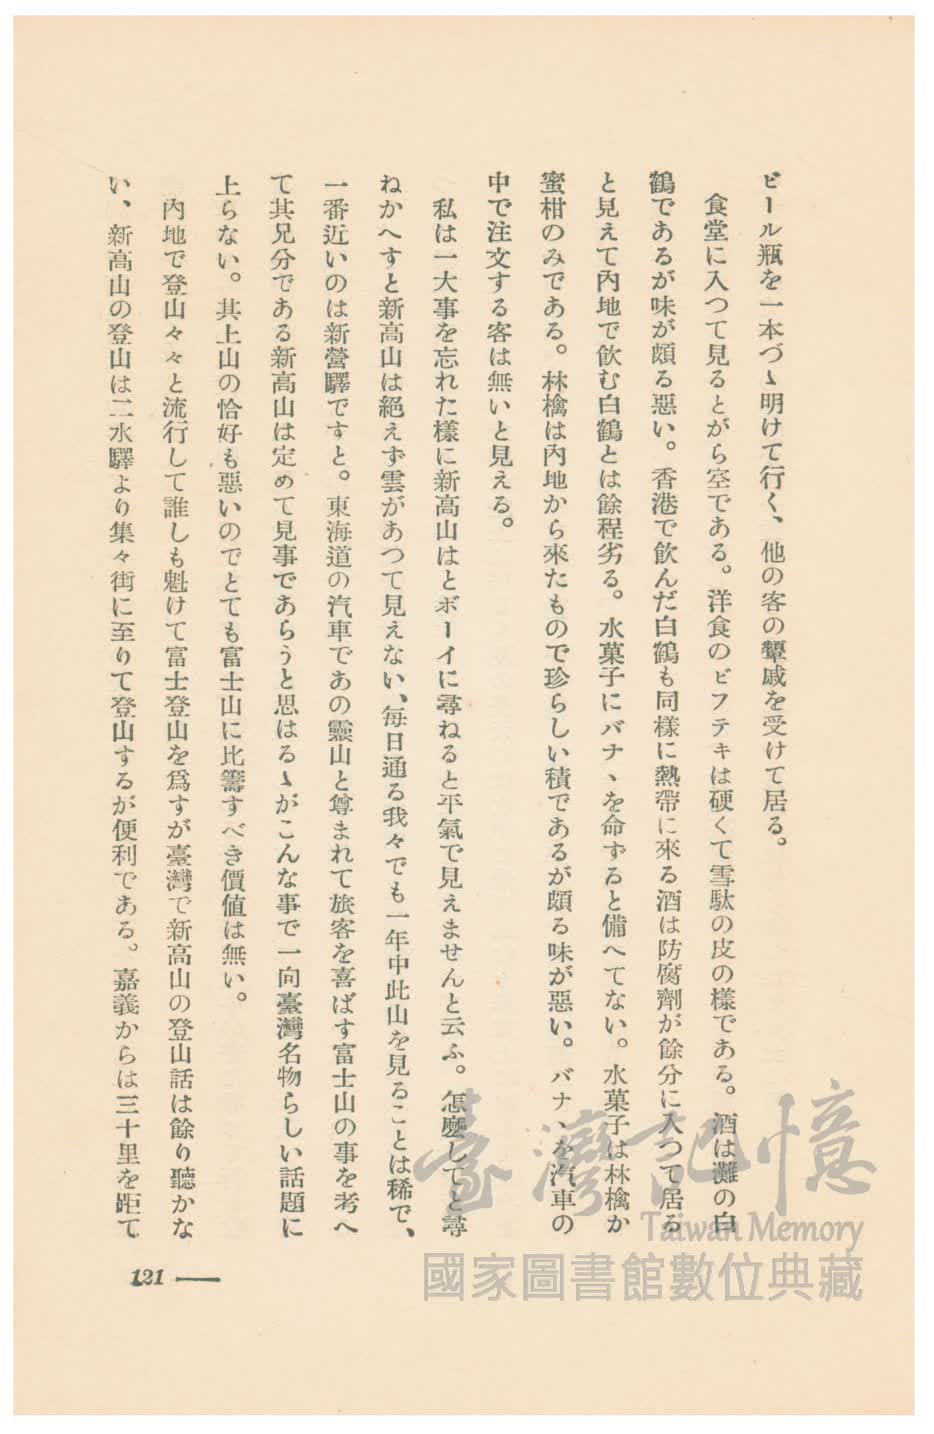 ビール瓶を一本づゝ明けて行く、他の客の顰戚を受けて居る。
食堂に入つて見るとがら空である。洋食のビフテキは硬くて雪駄の皮の樣である。酒は灘の白
鶴であるが味が頗る惡い。香港で飲んだ白鶴も同樣に熱帶に來る酒は防腐劑が餘分に入つて居る
と見えて內地で飲む白鶴とは餘程劣る。水菓子にバナヽを命ずると備へてない。水菓子は林檎か
蜜柑のみである。林檎は內地から來たもので珍らしい積であるが頗る味が惡い。バナヽを汽車の
中で注文する客は無いと見える。
私は一大事を忘れた樣に新高山はとボーイに尋ねると平氣で見えませんと云ふ。怎麽してと尋
ねかへすと新高山は絕えず雲があつて見えない、每日通る我々でも一年中此山を見ることは稀で、
一番近いのは新營驛ですと。東海道の汽車であの靈山と尊まれて旅客を喜ばす富士山の事を考へ
て其兄分である新高山は定めて見事であらうと思はるゝがこんな事で一向臺灣名物らしい話題に
上らない。其上山の恰好も惡いのでとても富士山に比籌すべき價値は無い。
內地で登山々々と流行して誰しも魁けて富士登山を爲すが臺灣で新高山の登山話は餘り聽かな
い、新高山の登山は二水驛より集々街に至りて登山するが便利である。嘉義からは三十里を距て
121
臺灣記憶
Taiwan Memory
國家圖書館數位典藏